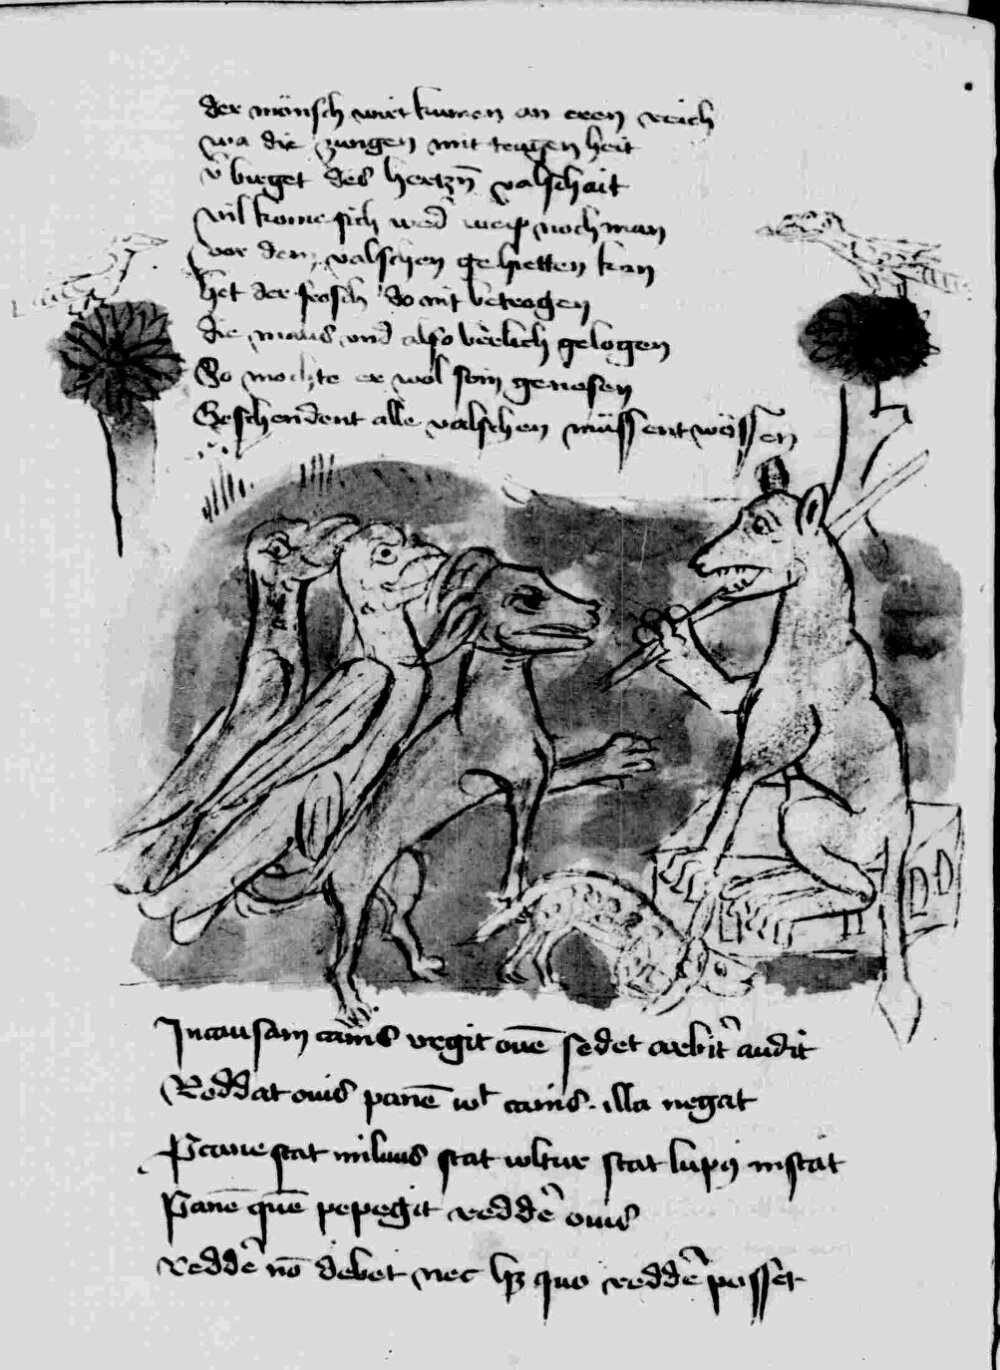 der mönsch wirt kumen an eren reich
wa die zungen mit trugenheit
v̄birget des hertzn̄ valschait
vil kome sich wed̓ weip noch man
vor dem valschen gehietten kan
het der frosch do mit betrogen
die maus vnd also b̓erlich gelogen
So mochte er wol sein genesen
Geschendent alle valschen müssent wössen
In causam canis vrgit ouē sedet arbit̓ audit
Reddat ouis panē wlt canis . illa negat
P cane stat miluus stat wltur stat lupꝰ instat
Panē quē pepegit redde̓ ouis
redde̓ nō debet nec hꝫ quo redde̓ posset